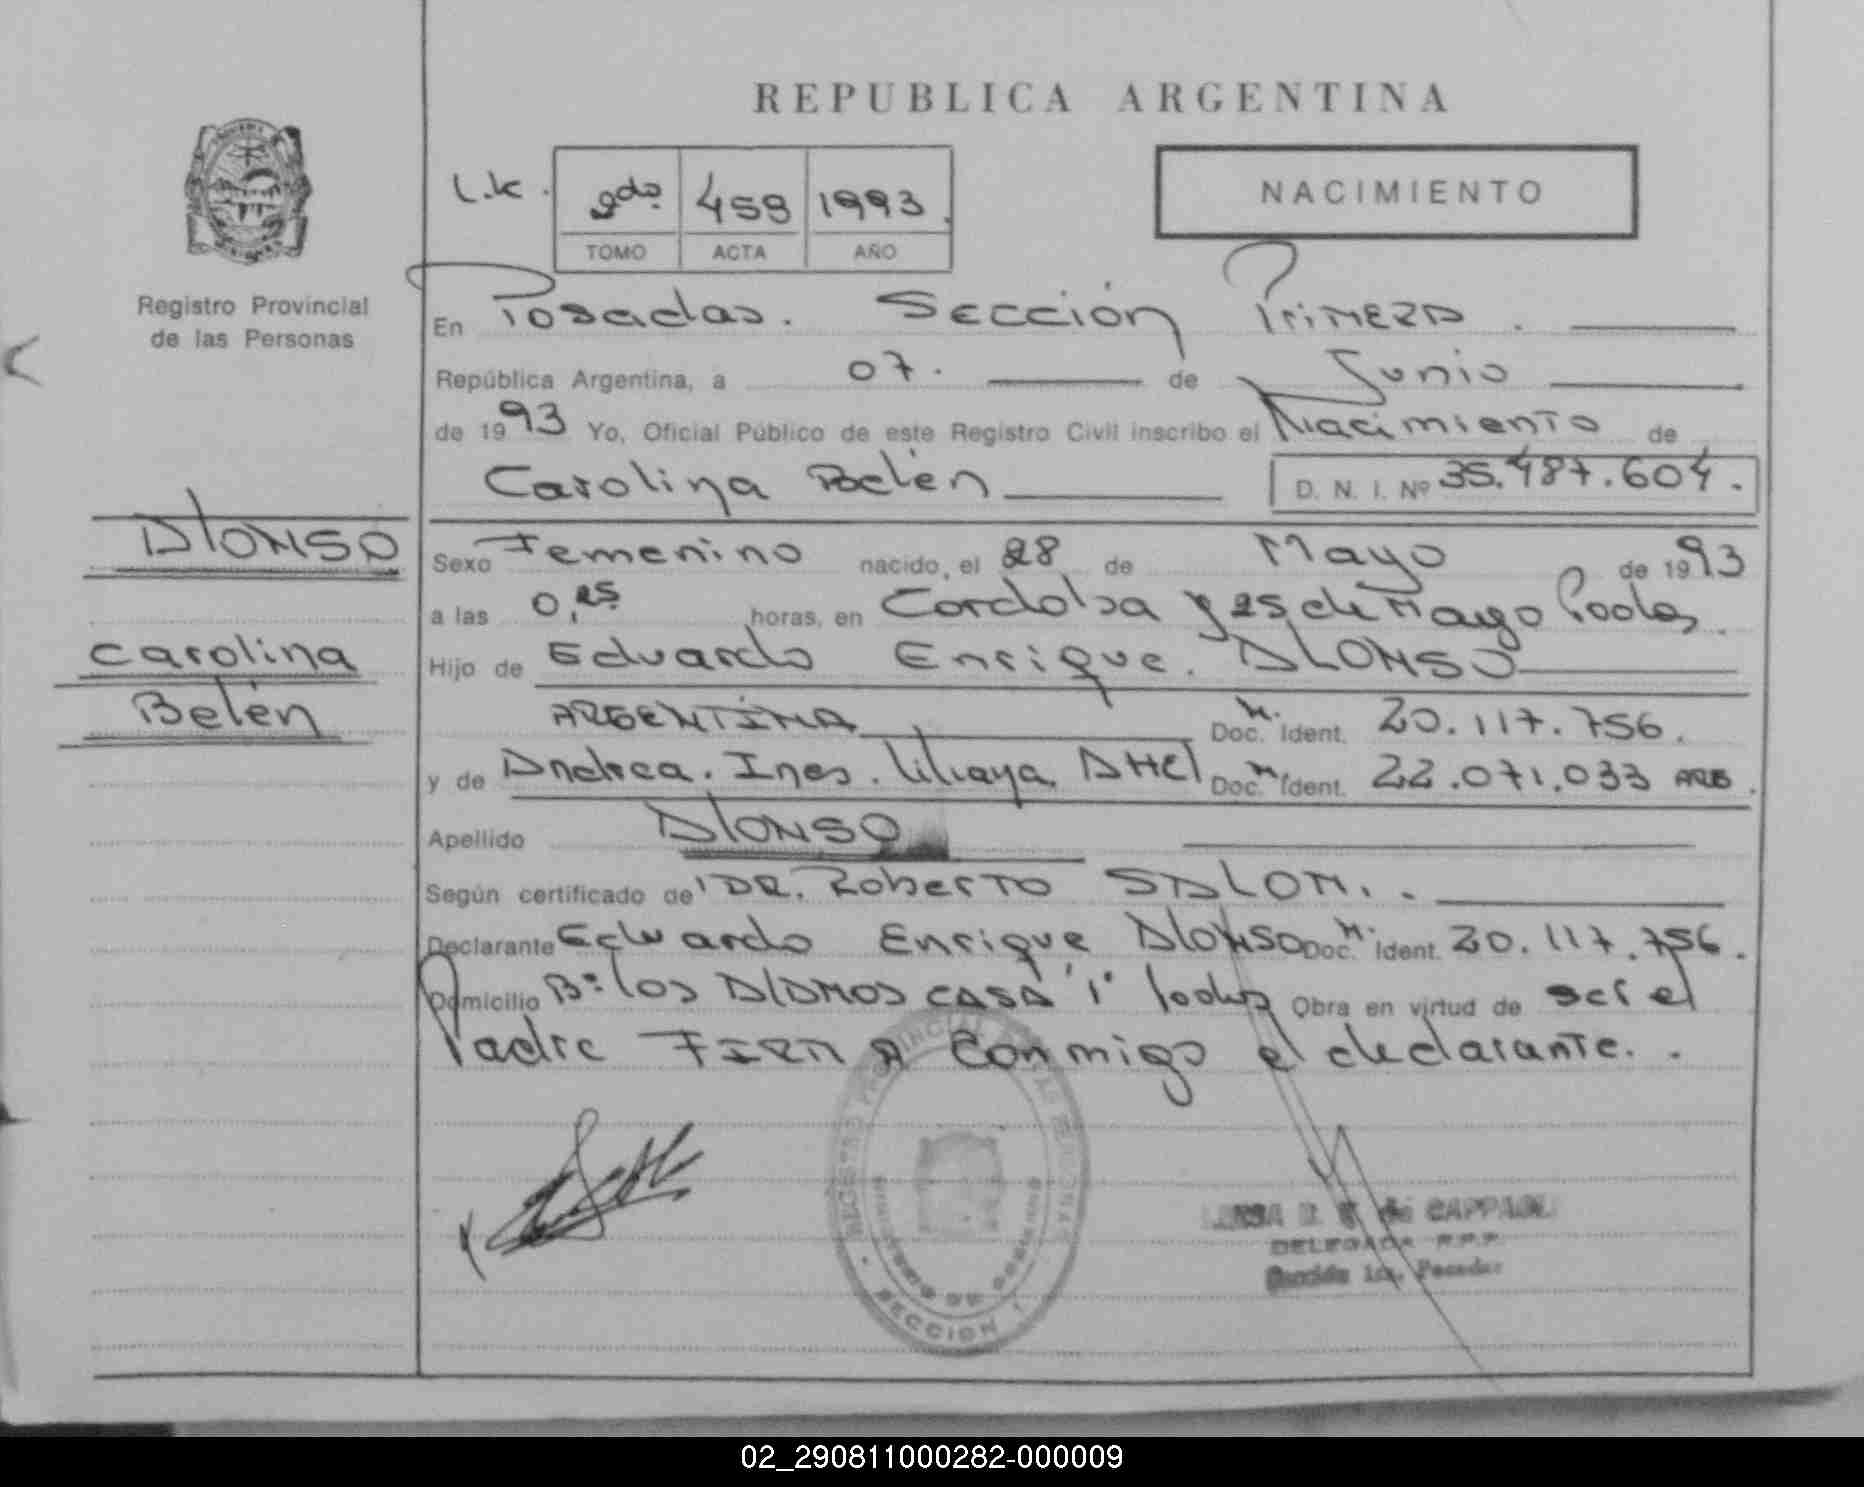 REPUBLICA ARGENTINA
L.K. 2do. 459 1993
TOMO ACTA AÑO
NACIMIENTO
Registro Provincial
de las Personas
En Posadas. Sección Primera.
República Argentina, a 07. de Junio
de 1993 Yo, Oficial Público de este Registro Civil inscribo el Nacimiento de
Carolina Belén D. N. I. Nº 35.487.604.
ALONSO
Carolina
Belén
Sexo Femenino nacido, el 28 de Mayo de 1993
a las 0,25 horas, en Cordoba y 25 de Mayo Pdas.
Hijo de Eduardo Enrique. ALONSO
ARGENTINA Doc. Ident. 20.117.756.
y de Andrea. Ines. Liliana. Doc. Ident. 22.071.033 ARG.
Apellido ALONSO
Según certificado de DR. Roberto SALOM.
Declarante Eduardo Enrique Alonso Doc. Ident. 20.117.756.
Domicilio Bº los ALAMOS CASA "1" Obra en virtud de ser el
Padre FIRMA Conmigo el declarante.
REGISTRO PROVINCIAL DE LAS PERSONAS
MINISTERIO DE GOBIERNO
SECCION 1
DELEGADA R.P.P.
Sección 1ra. Posadas
02_290811000282-000009